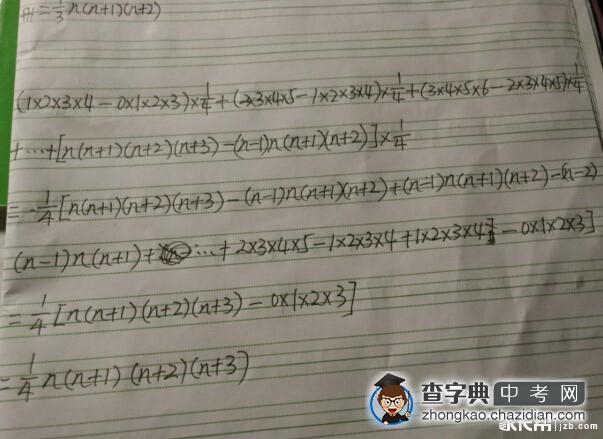 =⅓n(n+1)(n+2)
(1×2×3×4-0×1×2×3)×¼+(2×3×4×5-1×2×3×4)×¼+(3×4×5×6-2×3×4×5)×¼
+…+[n(n+1)(n+2)(n+3)-(n-1)n(n+1)(n+2)]×¼
=¼[n(n+1)(n+2)(n+3)-(n-1)n(n+1)(n+2)+(n-1)n(n+1)(n+2)-(n-2)
(n-1)n(n+1)+…+2×3×4×5-1×2×3×4+1×2×3×4-0×1×2×3]
=¼[n(n+1)(n+2)(n+3)-0×1×2×3]
=¼n(n+1)(n+2)(n+3)
查字典 中考网
zhongkao.chazidian.com
家长帮 jzb.com